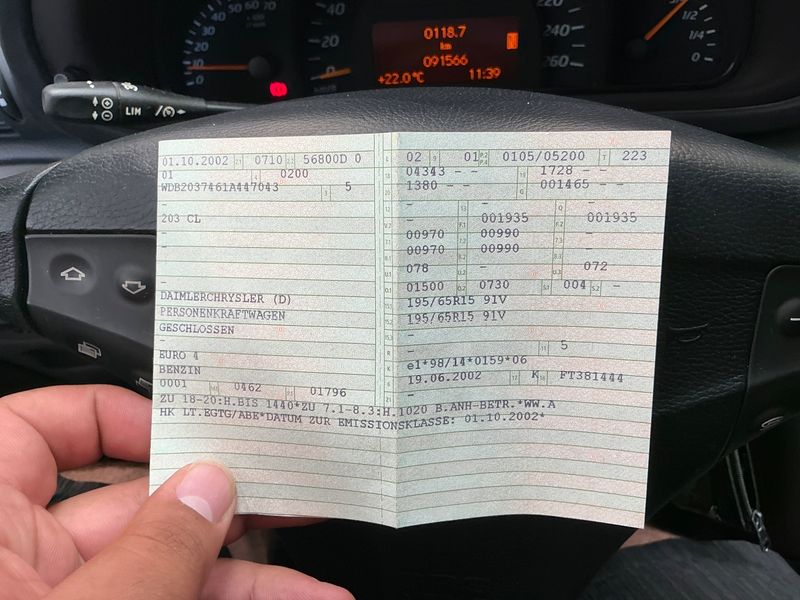 40
0118.7
km
091566
+22.0°C
11:39
220
240
260
1/2
1/4
0
20
0
70
60
50
40
30
20
10
0
LIM
01.10.2002 0710 56800D 0
01 0200
WDB2037461A447043 5
-
203 CL
-
-
-
DAIMLERCHRYSLER (D)
PERSONENKRAFTWAGEN
GESCHLOSSEN
-
EURO 4
BENZIN
0001 0462 01796
02 01 0105/05200 223
04343 - - 1728 - -
1380 - - 001465 - -
- - -
- 001935 001935
00970 00990 -
00970 00990 -
078 - 072
01500 0730 004 -
195/65R15 91V
195/65R15 91V
-
- 5
e1*98/14*0159*06
19.06.2002 K FT381444
-
ZU 18-20:H.BIS 1440*ZU 7.1-8.3:H.1020 B.ANH-BETR.*WW.A
HK LT.EGTG/ABE*DATUM ZUR EMISSIONSKLASSE: 01.10.2002*